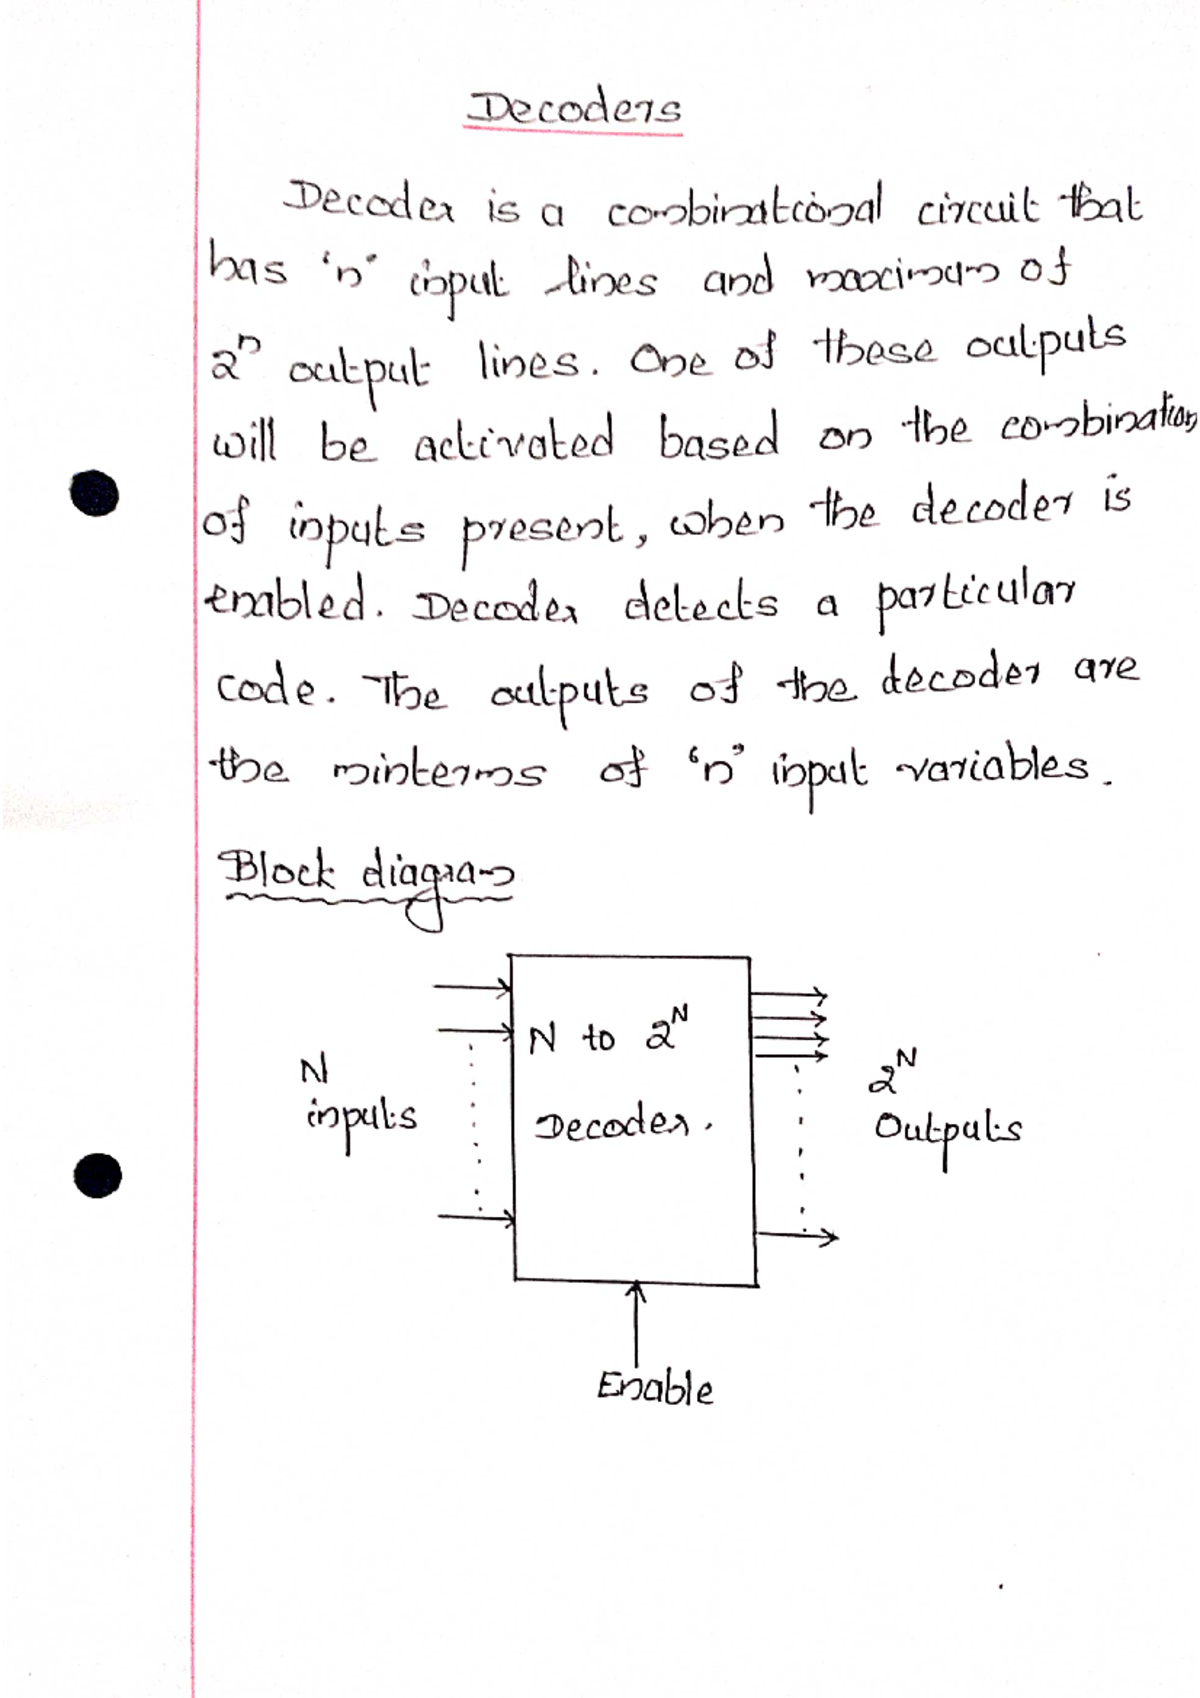 Decoders
Decoder is a combinational circuit that
has 'n' input lines and maximum of
2ⁿ output lines. One of these outputs
will be activated based on the combination
of inputs present, when the decoder is
enabled. Decoder detects a particular
code. The outputs of the decoder are
the minterms of 'n' input variables.
Block diagram
N to 2ᴺ
Decoder.
N
inputs
2ᴺ
Outputs
Enable